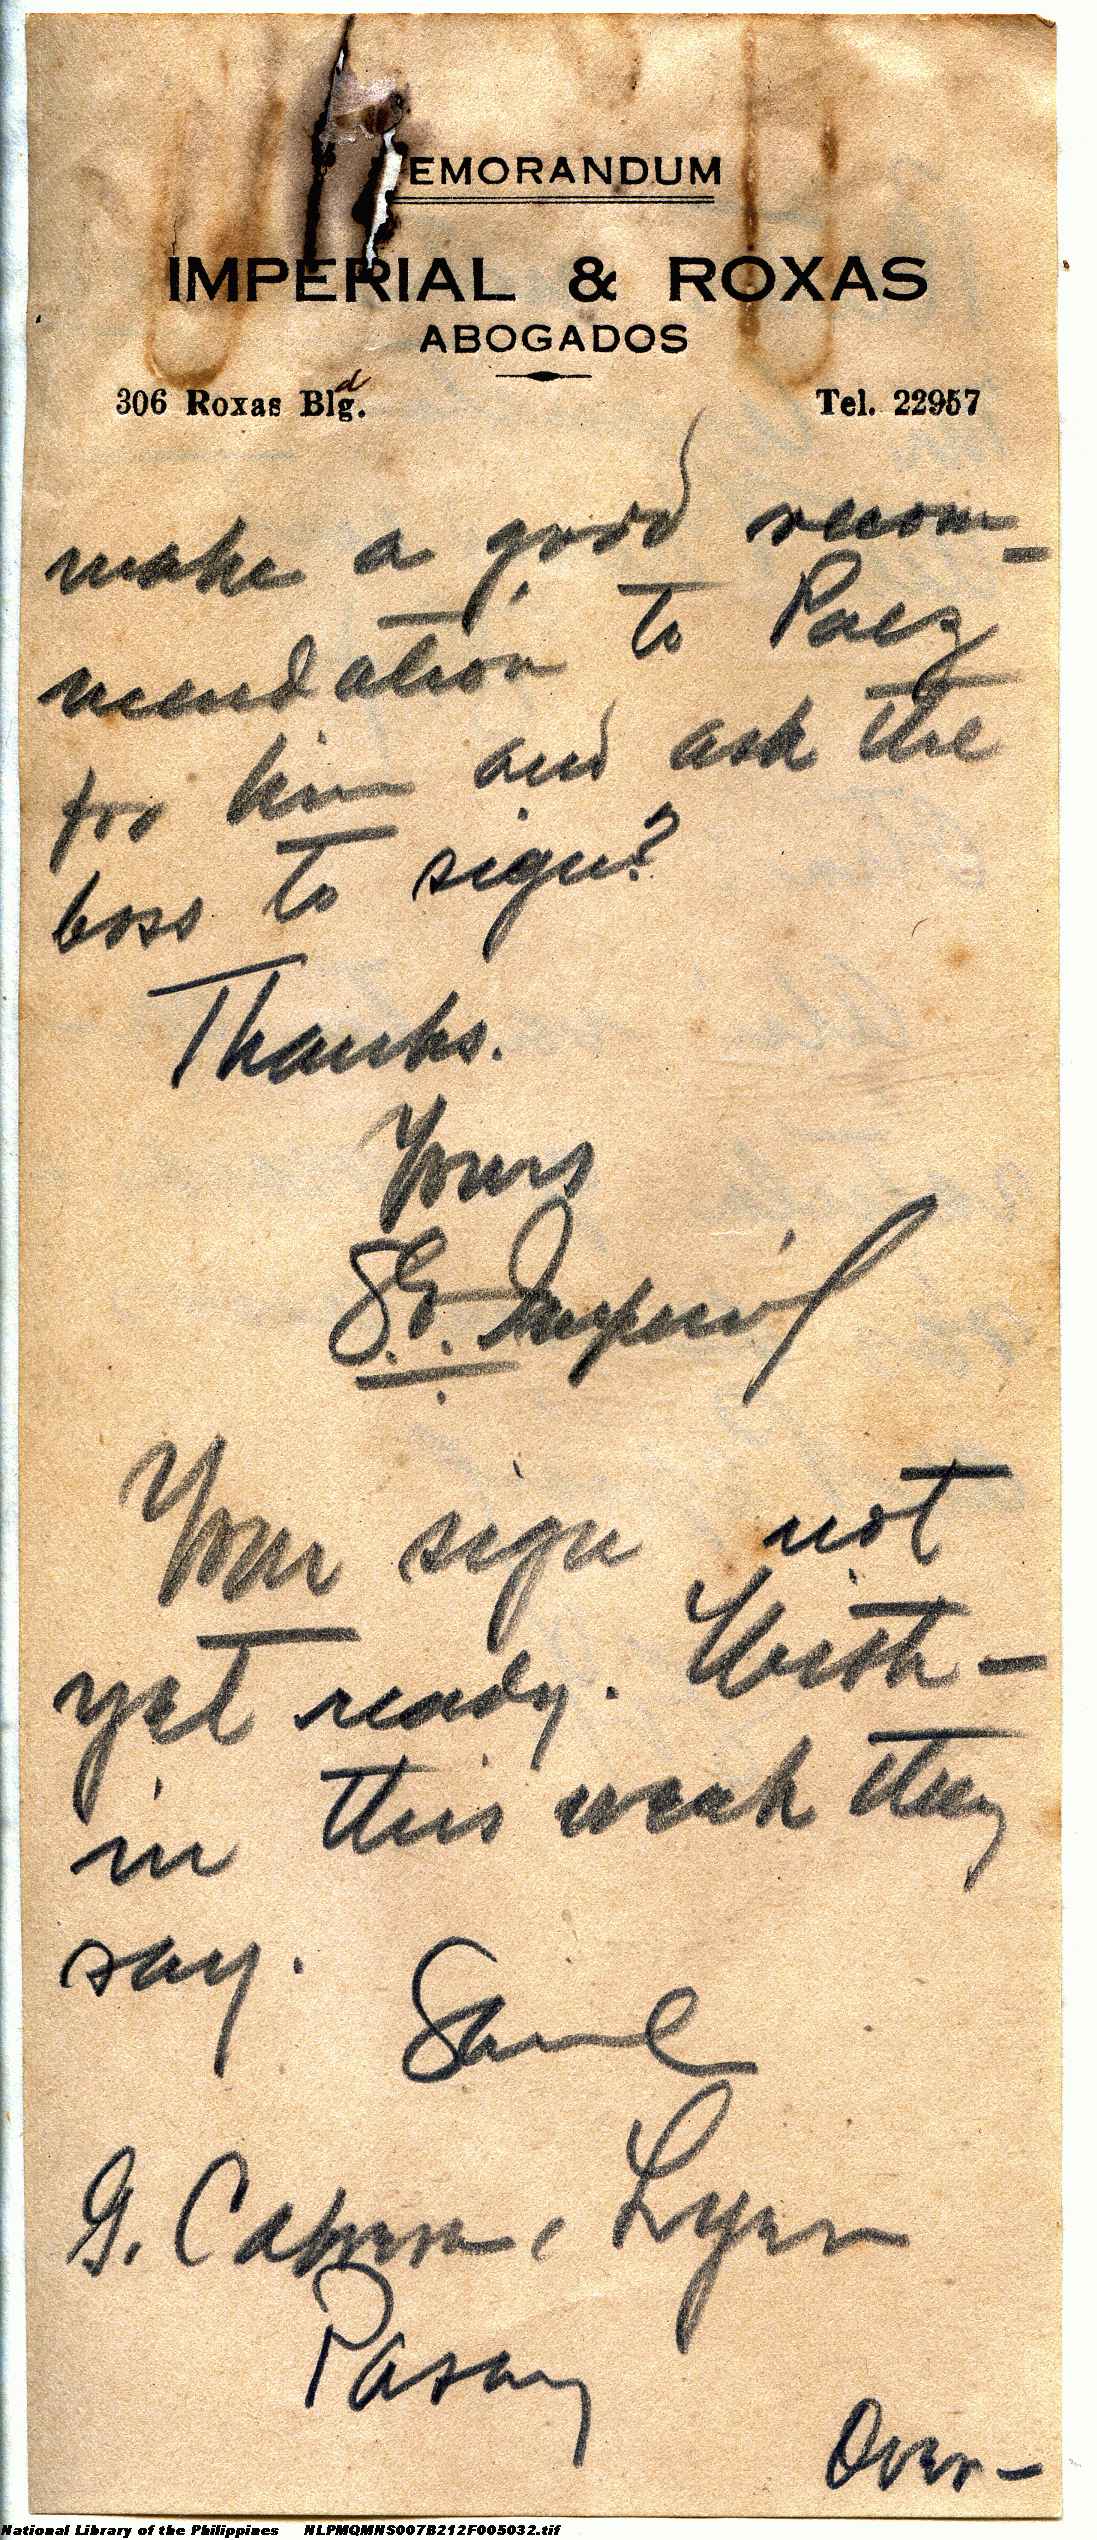 MEMORANDUM
IMPERIAL & ROXAS
ABOGADOS
306 Roxas Blg.
d
Tel. 22957
make a good recom-
mendation to Paez
for him and ask the
boss to sign?
Thanks.
Yours
Imperial
Your sign not
yet ready. With-
in this week they
say.
Same
G. Cabrera,
Pasay
Over-
National Library of the Philippines NLPMQMNS007B212F005032.tif